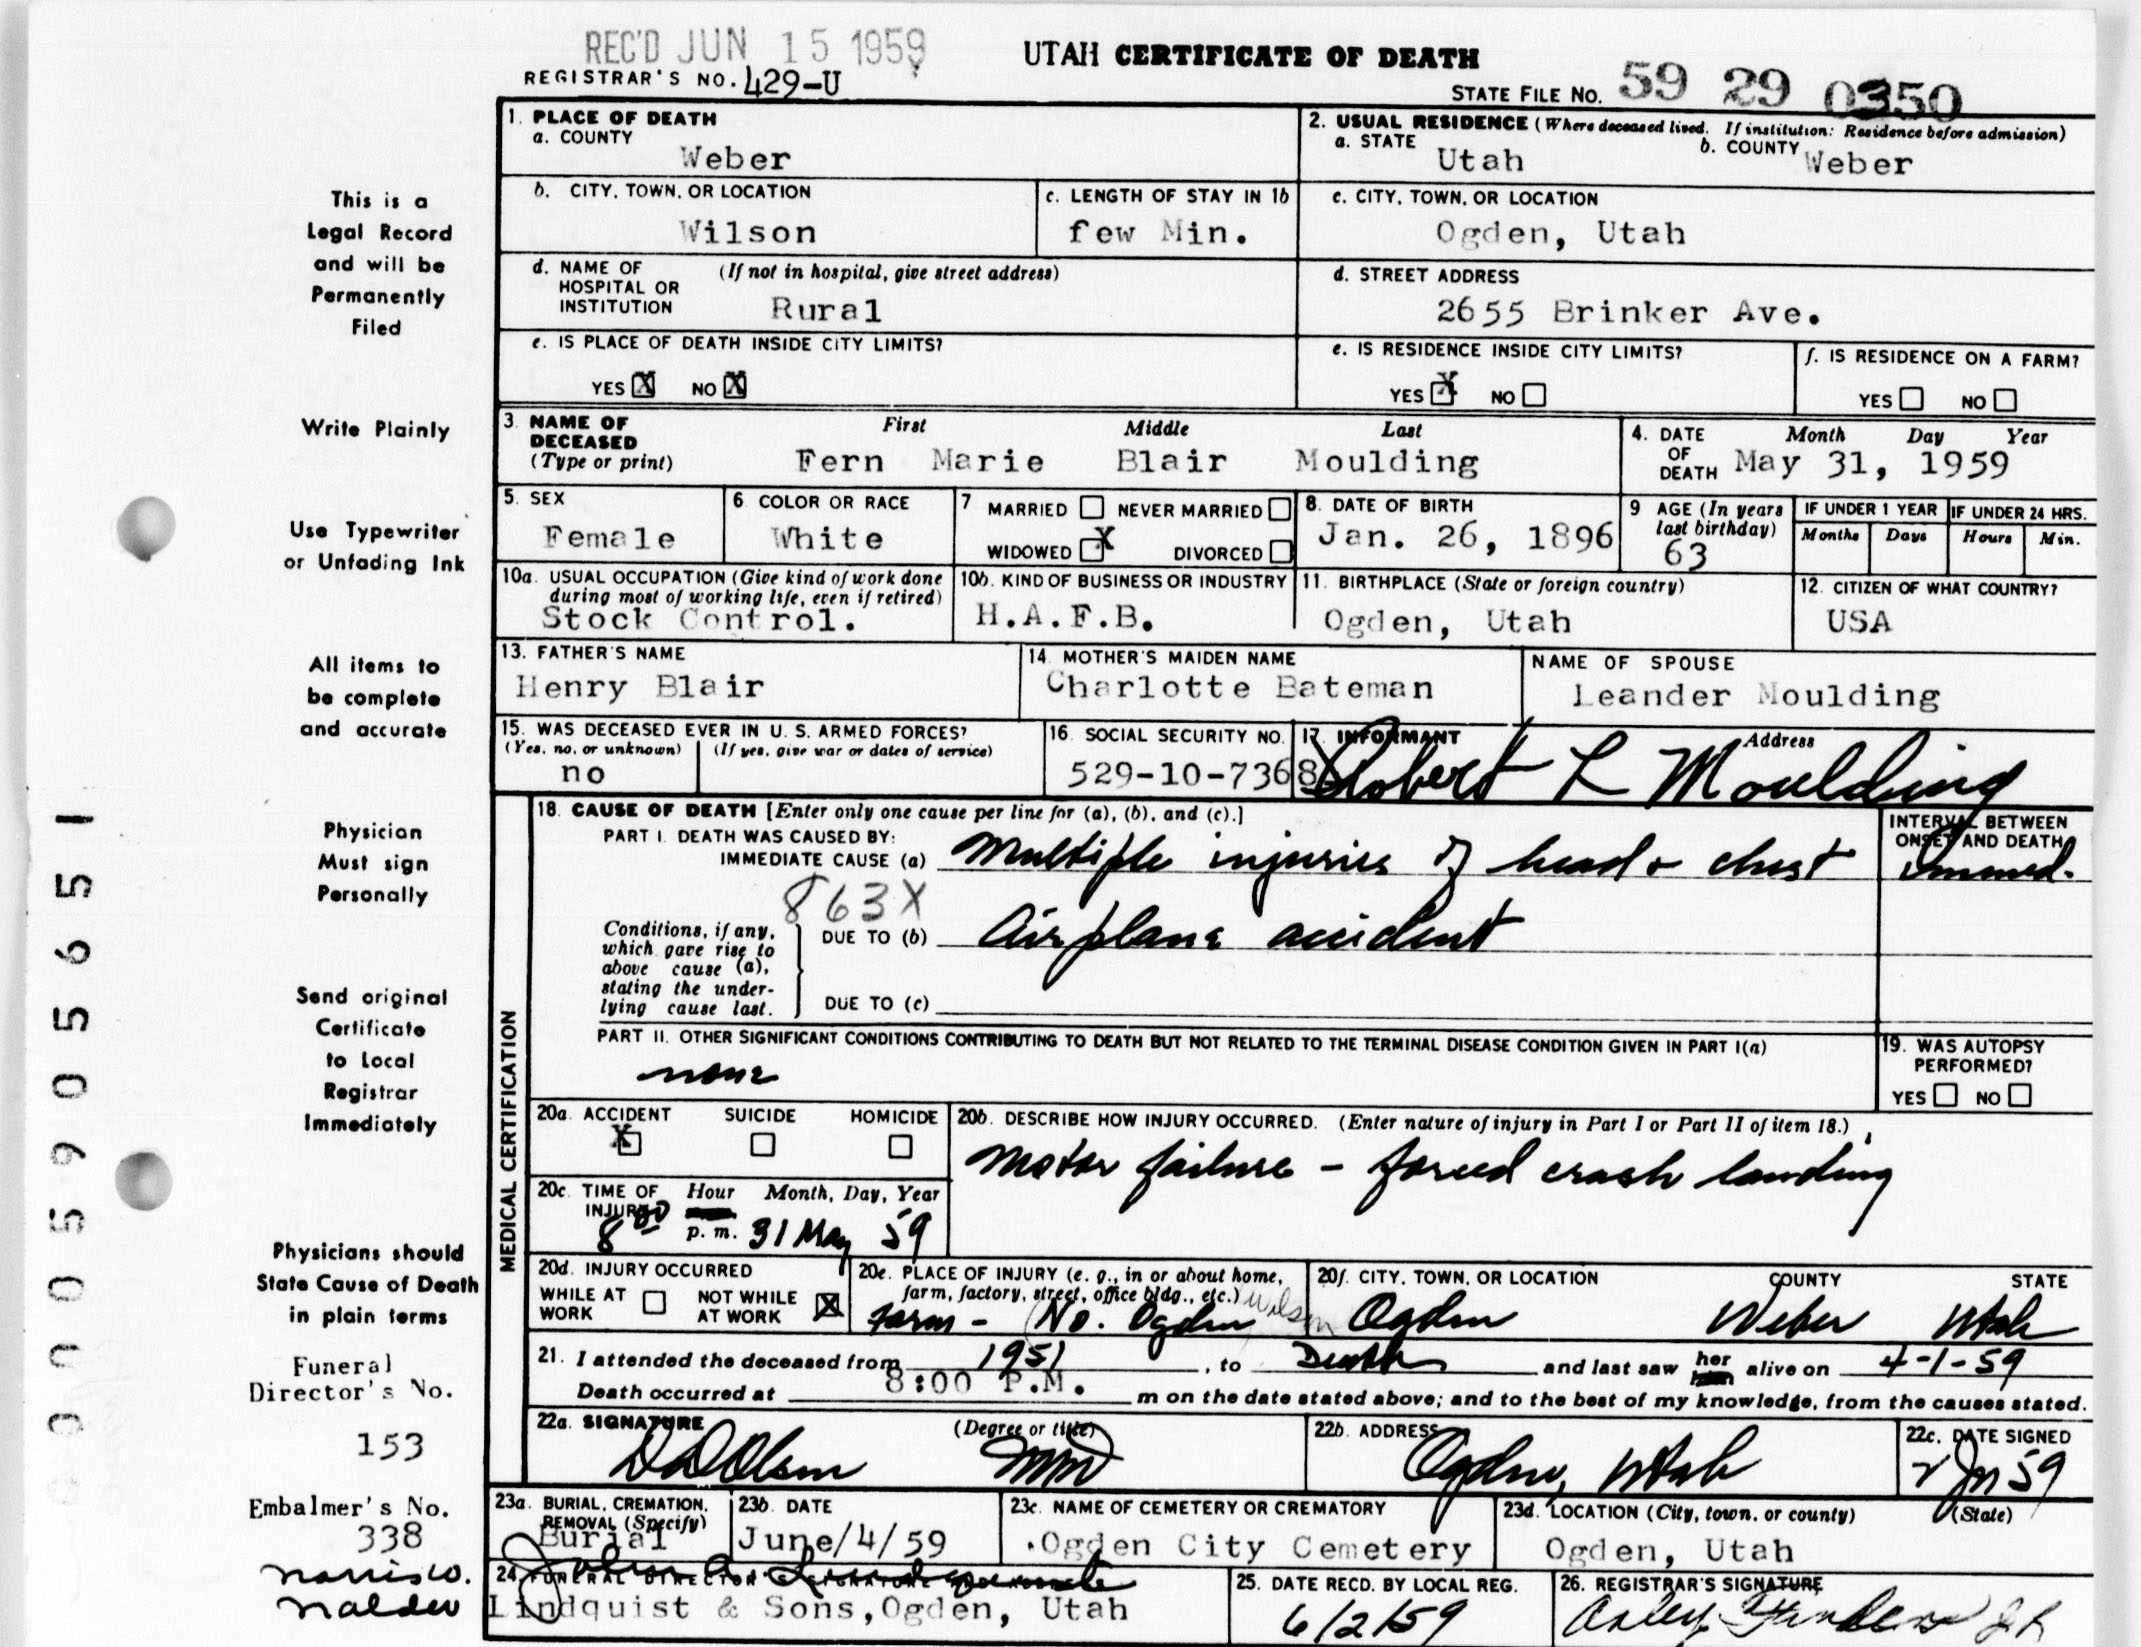 REC'D JUN 15 1959
UTAH CERTIFICATE OF DEATH
REGISTRAR'S NO. 429-U
STATE FILE NO. 59 29 0350
1. PLACE OF DEATH
a. COUNTY
Weber
2. USUAL RESIDENCE (Where deceased lived. If institution: Residence before admission)
a. STATE
Utah
b. COUNTY
Weber
b. CITY, TOWN, OR LOCATION
Wilson
c. LENGTH OF STAY IN 1b
few Min.
c. CITY, TOWN, OR LOCATION
Ogden, Utah
d. NAME OF HOSPITAL OR INSTITUTION
(If not in hospital, give street address)
Rural
d. STREET ADDRESS
2655 Brinker Ave.
e. IS PLACE OF DEATH INSIDE CITY LIMITS?
YES X NO X
e. IS RESIDENCE INSIDE CITY LIMITS?
YES X NO
f. IS RESIDENCE ON A FARM?
YES NO
3. NAME OF DECEASED (Type or print)
First Middle Last
Fern Marie Blair Moulding
4. DATE OF DEATH
Month Day Year
May 31, 1959
5. SEX
Female
6 COLOR OR RACE
White
7 MARRIED NEVER MARRIED
WIDOWED X DIVORCED
8. DATE OF BIRTH
Jan. 26, 1896
9 AGE (In years last birthday)
63
IF UNDER 1 YEAR
Months Days
IF UNDER 24 HRS.
Hours Min.
10a. USUAL OCCUPATION (Give kind of work done during most of working life, even if retired)
Stock Control.
10b. KIND OF BUSINESS OR INDUSTRY
H.A.F.B.
11. BIRTHPLACE (State or foreign country)
Ogden, Utah
12. CITIZEN OF WHAT COUNTRY?
USA
13. FATHER'S NAME
Henry Blair
14 MOTHER'S MAIDEN NAME
Charlotte Bateman
NAME OF SPOUSE
Leander Moulding
15. WAS DECEASED EVER IN U. S. ARMED FORCES?
(Yes, no, or unknown) (If yes, give war or dates of service)
no
16. SOCIAL SECURITY NO.
529-10-7368
17. INFORMANT Address
Robert L Moulding
MEDICAL CERTIFICATION
18. CAUSE OF DEATH [Enter only one cause per line for (a), (b), and (c).]
PART I. DEATH WAS CAUSED BY:
IMMEDIATE CAUSE (a) Multiple injuries of head & chest
INTERVAL BETWEEN ONSET AND DEATH
immed.
863X
Conditions, if any, which gave rise to above cause (a), stating the underlying cause last.
DUE TO (b) Airplane accident
DUE TO (c)
PART II. OTHER SIGNIFICANT CONDITIONS CONTRIBUTING TO DEATH BUT NOT RELATED TO THE TERMINAL DISEASE CONDITION GIVEN IN PART I(a)
none
19. WAS AUTOPSY PERFORMED?
YES NO
20a. ACCIDENT SUICIDE HOMICIDE
X
20b. DESCRIBE HOW INJURY OCCURRED. (Enter nature of injury in Part I or Part II of item 18.)
Motor failure - forced crash landing
20c. TIME OF INJURY Hour Month, Day, Year
8 00 p. m. 31 May 59
20d. INJURY OCCURRED
WHILE AT WORK NOT WHILE AT WORK X
20e. PLACE OF INJURY (e. g., in or about home, farm, factory, street, office bldg., etc.)
Farm - (No. Ogden Wilson
20f. CITY, TOWN, OR LOCATION COUNTY STATE
Ogden Weber Utah
21. I attended the deceased from 1951, to Death and last saw her him alive on 4-1-59
Death occurred at 8:00 P.M. m on the date stated above; and to the best of my knowledge, from the causes stated.
22a. SIGNATURE (Degree or title)
D D Olsen MD
22b. ADDRESS
Ogden, Utah
22c. DATE SIGNED
2 Jn 59
23a. BURIAL, CREMATION, REMOVAL (Specify)
Burial
23b. DATE
June/4/59
23c. NAME OF CEMETERY OR CREMATORY
Ogden City Cemetery
23d. LOCATION (City, town, or county) (State)
Ogden, Utah
24. FUNERAL DIRECTOR'S SIGNATURE
John A. Lindquist
Lindquist & Sons, Ogden, Utah
25. DATE RECD. BY LOCAL REG.
6/2/59
26. REGISTRAR'S SIGNATURE
This is a
Legal Record
and will be
Permanently
Filed
Write Plainly
Use Typewriter
or Unfading Ink
All items to
be complete
and accurate
Physician
Must sign
Personally
Send original
Certificate
to Local
Registrar
Immediately
Physicians should
State Cause of Death
in plain terms
Funeral
Director's No.
153
Embalmer's No.
338
Norris W.
Nalder